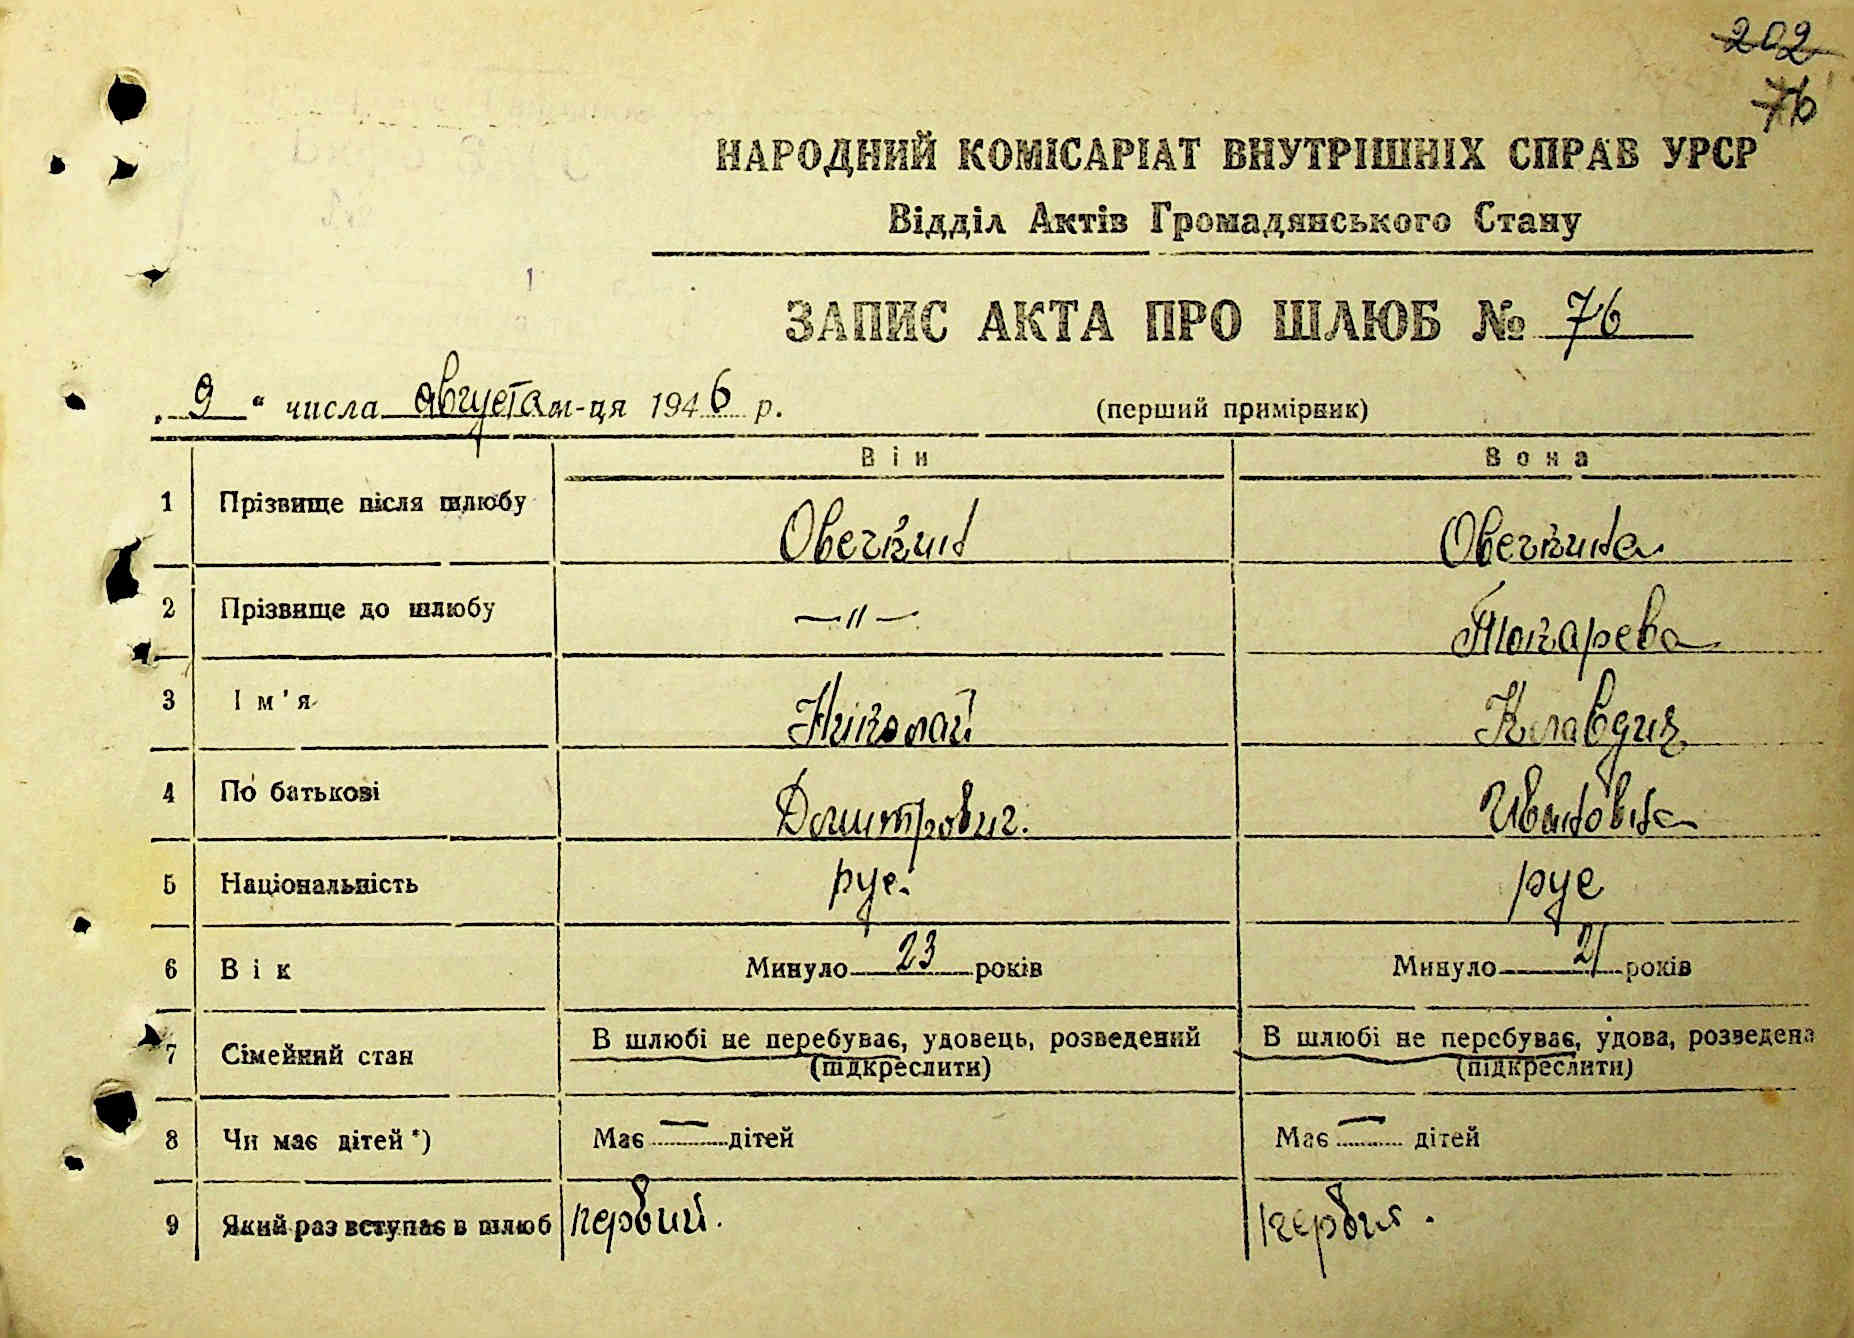 202
76
НАРОДНИЙ КОМІСАРІАТ ВНУТРІШНІХ СПРАВ УРСР
Відділ Актів Громадянського Стану
ЗАПИС АКТА ПРО ШЛЮБ № 76
„ 9 “ числа августа м-ця 1946 р. (перший примірник)
Він Вона
1 Прізвище після шлюбу Овечкин Овечкина
2 Прізвище до шлюбу —〃— Токарева
3 Ім'я Николай Клавдия
4 По батькові Дмитрович. Ивановна
5 Національність рус. рус
6 Вік Минуло 23 років Минуло 21 років
7 Сімейний стан В шлюбі не перебуває, удовець, розведений В шлюбі не перебуває, удова, розведена
(підкреслити) (підкреслити)
8 Чи має дітей *) Має — дітей Має — дітей
9 Який раз вступає в шлюб первий. первия.